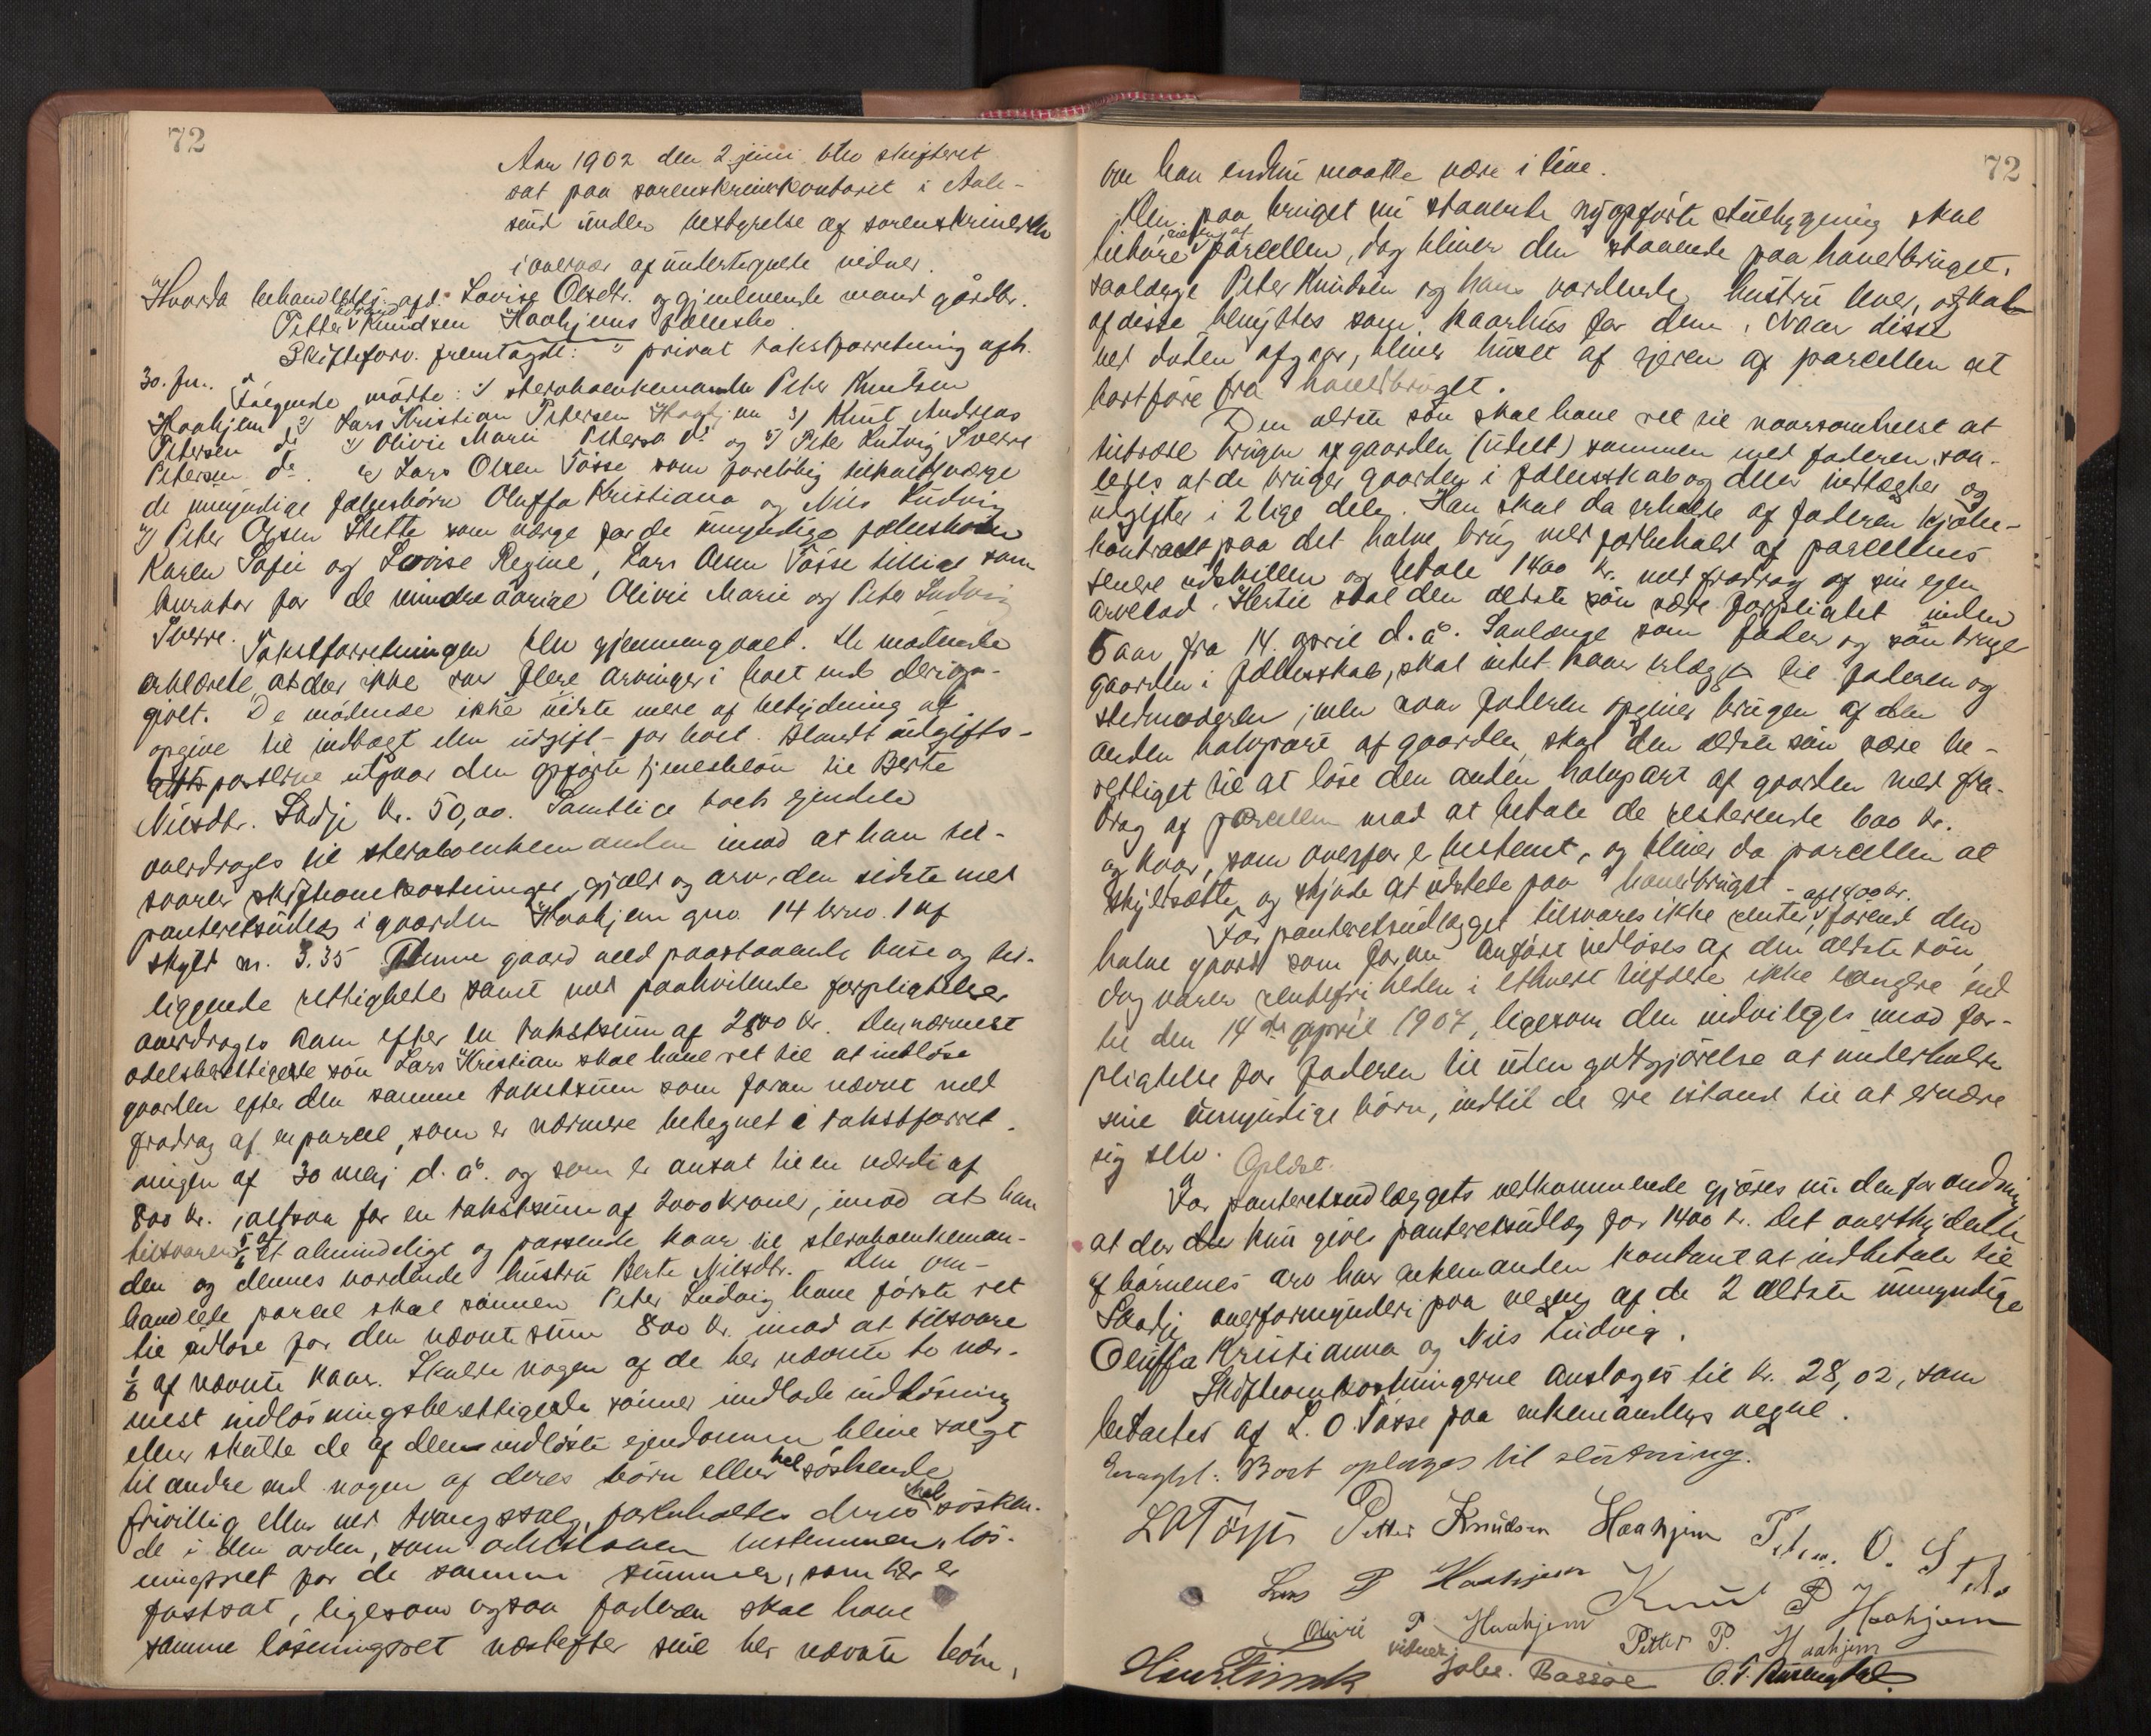 72
Aar 1902 den 2 juni blev skifteret
sat paa sorenskriverkontoret i Aale-
sund under bestyrelse af sorenskriveren
i overvær af undertegnede vidner.
Hvorda behandledes: afd. Lovise Olsdtr. og gjenlevende mand gårdbr.
Petter Knudsen Haahjems fællesbo
Skifteforv. fremlagde: privat takstforretning afh.
30. f.m. Følgende mødte: 1) sterboenkemanden Peter Knudsen
Haahjem 2) Lars Kristian Petersen Haahjem 3) Knut Andreas
Petersen do 4) Olivie Marie Petersd. do og 5) Peter Ludvig Sverre
Petersen do. 6) Lars Olsen Tøsse som foreløbig beskikket værge
de umyndige fællesbørn Oluffa Kristiana og Nils Ludvig
7) Peter Olsen Stette som værge for de umyndige fællesbørn
Karen Sofie og Lovise Regine, Lars Olsen Tøsse tillige som
kurator for de mindreaarige Olivie Marie og Peter Ludvig
Sverre. Takstforretningen blev gjennemgaaet. De mødende
erklærede, at der ikke var flere arvinger i boet end derigj-
givet. De mødende ikke vidste mere af betydning at
opgive til indtægt eller udgift for boet. Blandt udgifts-
posterne utgaar den opførte tjenesteløn til Berte
Nilsdtr. Skodje kr. 50,00. Samtlige boets eiendele
overdrages til sterboenkemanden imod at han til-
svarer skifteomkostninger, gjæld og arv, den sidste med
panteretsudlæg i gaarden Haahjem gno. 14 brno. 1 af
skyld m. 3.35 Denne gaard med paastaaende huse og til-
liggende rettigheder samt med paahvilende forpligtelser
overdrages ham efter en takstsum af 2800 kr. Den nærmest
odelsberettigede søn Lars Kristian skal have ret til at indløse
gaarden efter den samme takstsum som foran nævnt med
fradrag af en parcel, som er nærmere betegnet i takstforret-
ningen af 30 maj d. å. og som er ansat til en værdi af
800 kr. altsaa for en takstsum af 2000 kroner, imod at han
tilsvarer 5/6 af et almindelige og passende kaar til sterboenkeman-
den og dennes vordende hustru Berte Nilsdtr. Den om-
handlede parcel skal sønnen Peter Ludvig have første ret
til indløse for den nævnte sum 800 kr. imod at tilsvare
1/6 af nævnte kaar. Skulde nogen af de her nævnte to nær-
mest indløsningsberettigede sønner undlade indløsning
eller skulde de af dem indløste ejendomme blive solgt
til andre end nogen af deres børn eller helsøskende
frivillig eller ved tvangssalg, forbeholdes deres helsøsken-
de i den orden, som odelsloven bestemmer, løs-
ningsret for de samme summer, som her er
fastsat, ligesom ogsaa faderen skal have
samme løsningsret næstefter sine her nævnte børn,
72
om han endnu maatte være i live.
Den paa bruget nu staaende nyopførte stuebygning skal
tilhøre eieren af parcellen, dog bliver den staaende paa hovedbruget,
saalænge Peter Knudsen og hans vordende hustru lever, og skal
af disse benyttes som kaarhus for dem. Naar disse
ved døden afgaar, bliver huset af ejeren af parcellen at
bortføre fra hovedbruget.
Den ældste søn skal have ret til naarsomhelst at
tiltræde brugen af gaarden (udelt) sammen med faderen saa-
ledes at de bruger gaarden i fællesskab og deler indtægter og
utgifter i 2 lige dele. Han skal da erholde af faderen kjøbe-
kontrakt paa det halve brug med forbehold af parcellens
senere udskillen og betale 1400 kr. med fradrag af sin egen
arvelod. Hertil skal den ældste søn være forpligtet inden
5 aar fra 14. april d. å. Saalænge som fader og søn bruger
gaarden i fællesskab, skal intet kaar erlægges til faderen og
stedmoderen; men naar faderen opgiver brugen af den
anden halvpart af gaarden, skal den ældste søn være be-
rettiget til at løse den anden halvpart af gaarden med fra-
drag af parcellen mod at betale de resterende 600 kr.
og kaar, som ovenfor er bestemt, og bliver da parcellen at
skyldsætte og skjøde at udstede paa hovedbruget.
For panteretsudlægget tilsvares ikke renter af 1400 kr. førend den
halve gaard som foran anført indløses af den ældste søn,
dog varer rentefriheden i ethvert tilfælde ikke længere end
til den 14de april 1907, ligesom den indvilges mod for-
pligtelse for faderen til uden godtgjørelse at underholde
sine umyndige børn, indtil de ere istand til at ernære
sig selv. Oplæst.
For panteretsudlæggets vedkommende gjøres nu den forandring
at der kun gives panteretsudlæg for 1400 kr. Det overskydende
af børnenes arv har enkemanden kontant at indbetale til
Skodje overformynderi paa vegne af de 2 ældste umyndige
Oluffa Kristianna og Nils Ludvig.
Skifteomkostningerne anslages til kr. 28,02, som
betaltes af L. O. Tøsse paa enkemandens vegne.
Eragtet: Boet optages til slutning.
L O Tøsse Petter Knudsen Haahjem Peter. O. Stette
Lars P Haahjem Knut P Haahjem
Olivie P. Haahjem Petter P. Haahjem
vidner:
Johs. Bassøe